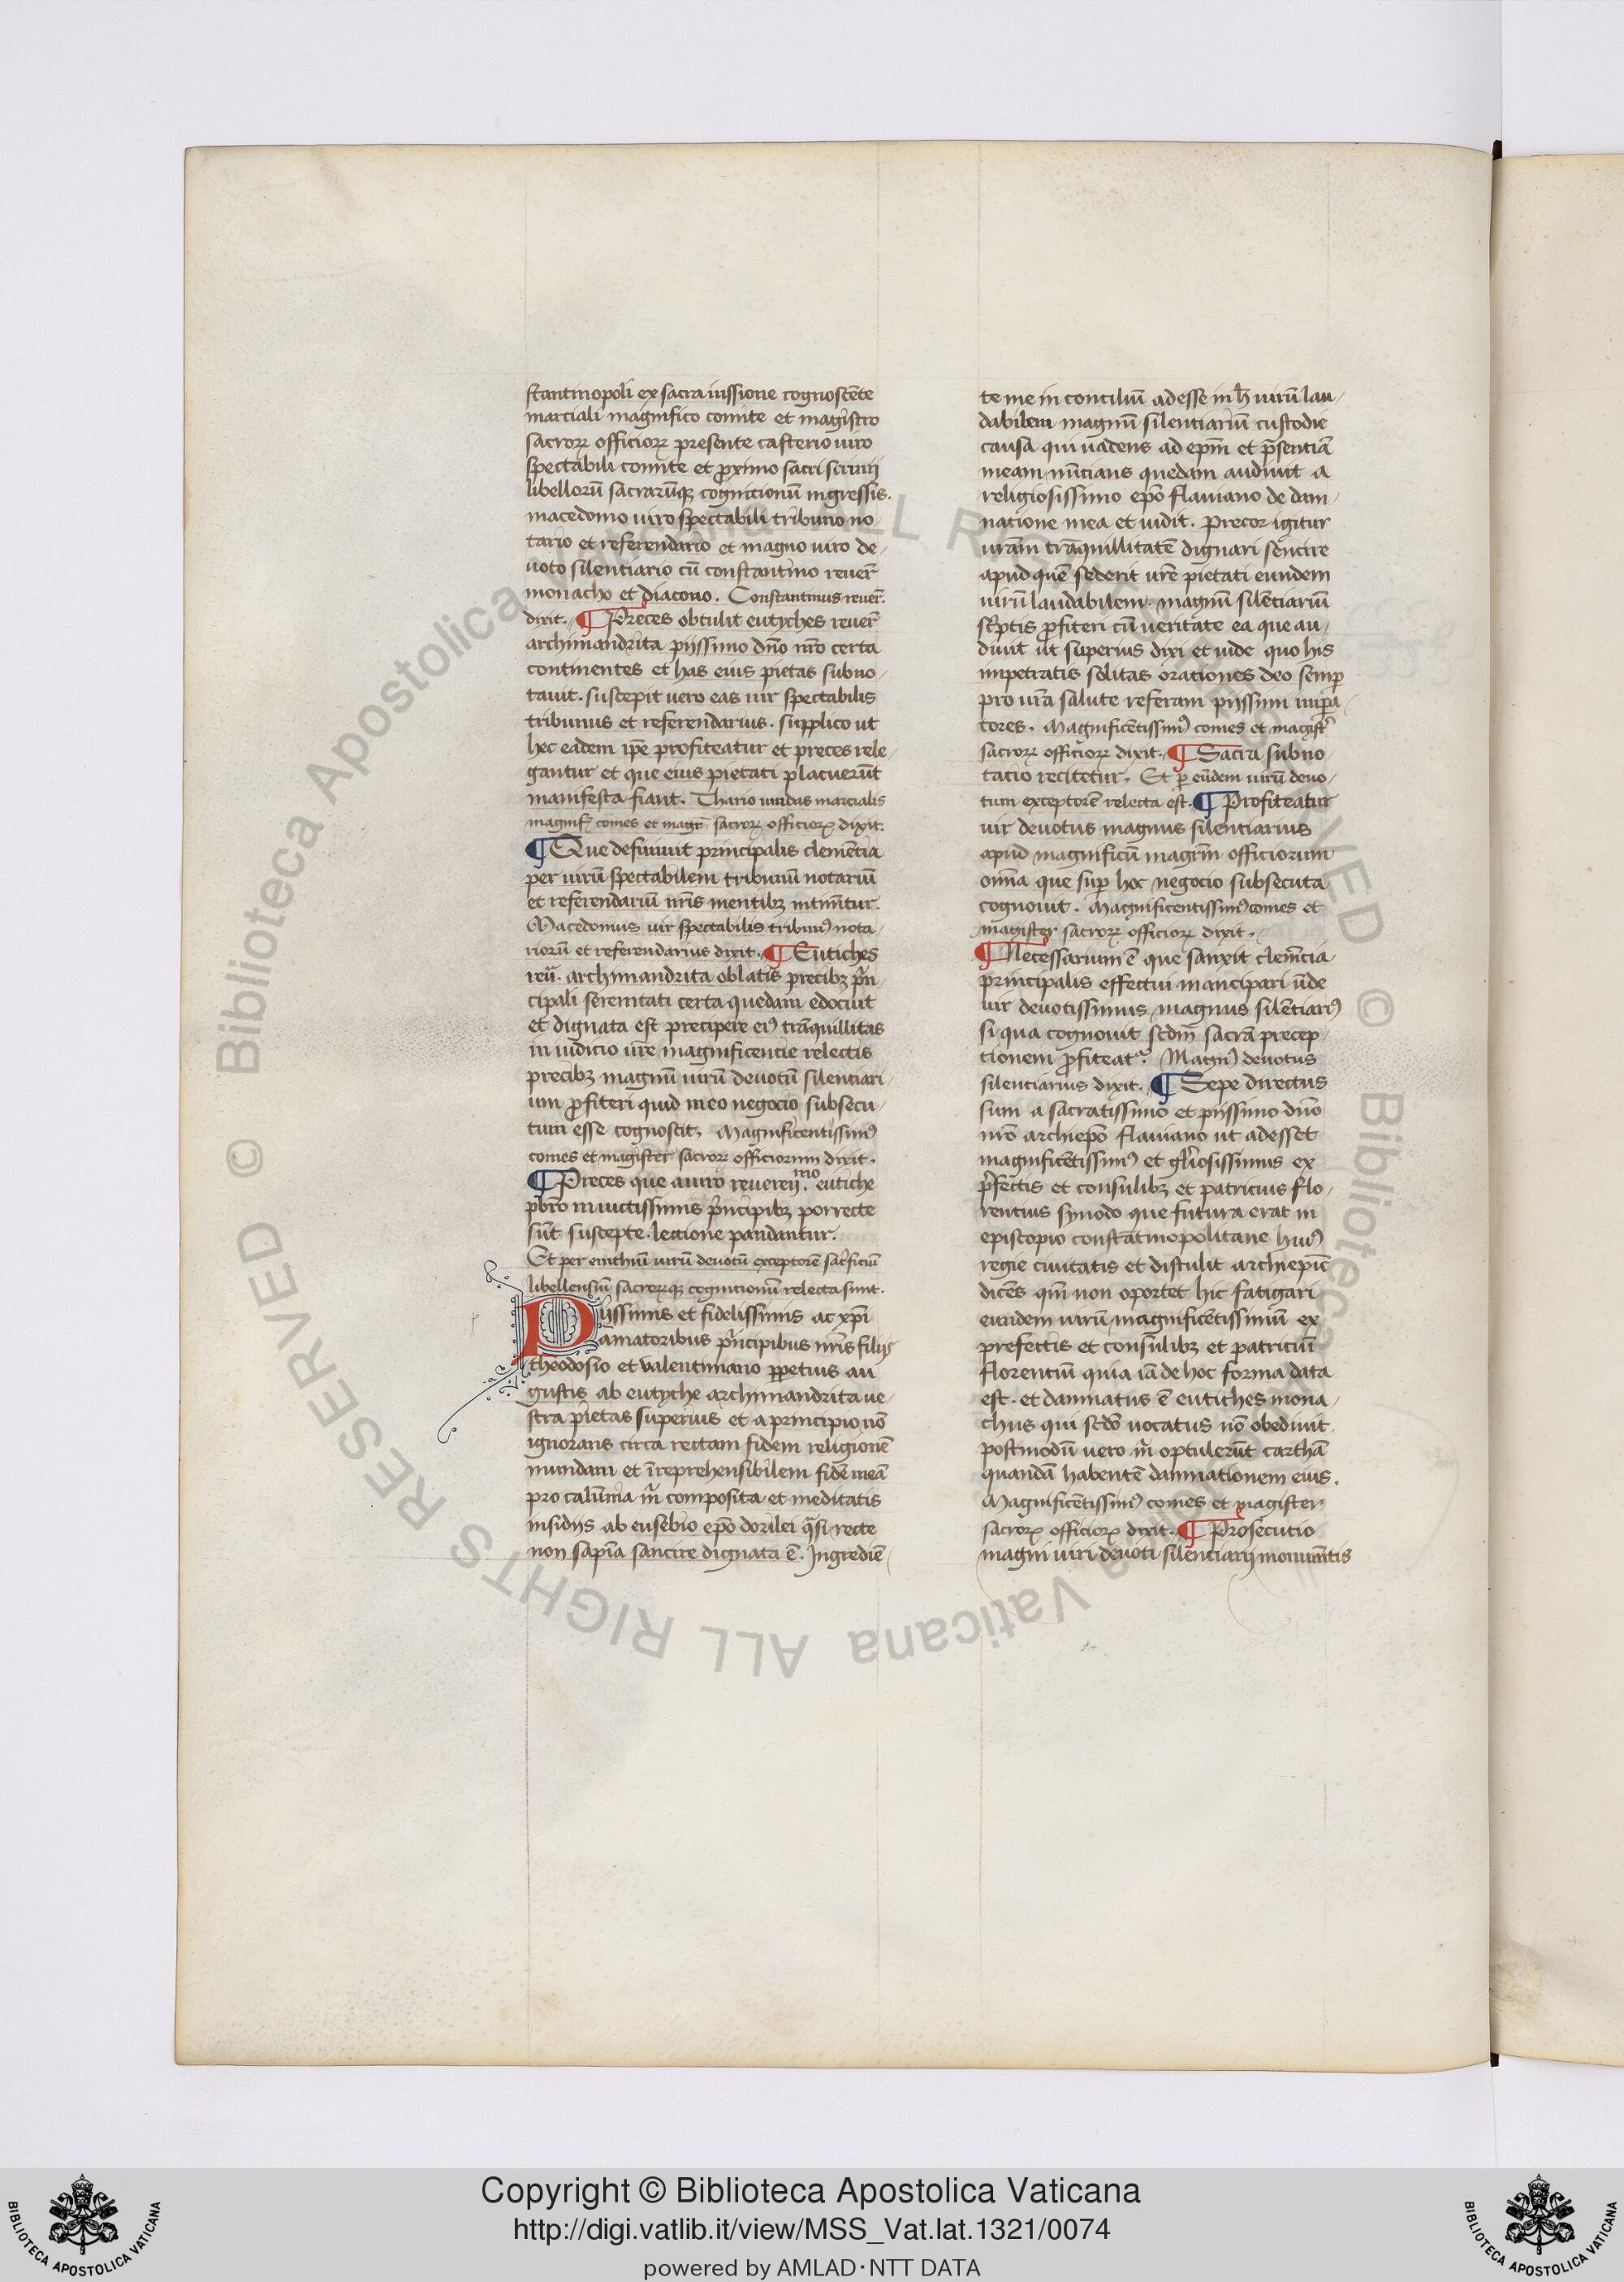 stantinopoli ex sacra iussione cognoscẽte
marciali magnifico comite et magistro
sacroꝝ officioꝝ presente casterio uiro
spectabili comite et ꝓximo sacri scrinij
libellorũ sacrarũqꝫ cognicionũ ingressis.
macedonio uiro spectabili tribuno no
tario et referendario et magno uiro de
uoto silentiario cũ constantino reuer̃
monacho et diacono. Constantinus reuer̃.
dixit. ¶ Preces obtulit eutyches reuer̃
archimandrita pijssimo dño nr̃o certa
continentes et has eius pietas subno
tauit. suscepit uero eas uir spectabilis
tribunus et referendarius. supplico ut
hec eadem ip̃e profiteatur et preces rele
gantur et que eius pietati placuerũt
manifesta fiant. marcialis
magnif̃ comes et magr̃ sacroꝝ officioꝝ dixit.
¶ Que definiuit principalis clemẽtia
per uirũ spectabilem tribunũ notariũ
et referendariũ nr̃is mentibꝫ intimẽtur.
Macedonius uir spectabilis tribunꝰ nota
riorũ et referendarius dixit. ¶ Eutiches
reũ. archimandrita oblatis precibꝫ pñ
cipali serenitati certa quedam edocuit
et dignata est precipere eiꝰ trãquillitas
in iudicio ur̃e magnificentie relectis
precibꝫ magnũ uirũ deuotũ silentiari
um ꝓfiteri quid in eo negocio subsecu
tum esse cognoscit. Magnificentissimꝰ
comes et magister sacroꝝ officiorum dixit.
¶ Preces que a uiro reuerẽ mo eutiche
pbr̃o inuictissimis p̃ncipibꝫ porrecte
sũt suscepte. lectione pandantur.
Et per uirũ deuotũ exceptorẽ
libellensiũ sacroꝝqꝫ cognicionũ relecta sunt.
Pijssimis et fidelissimis ac xp̃i
amatoribus p̃ncipibus nr̃is filijs
theodosio et valentiniano ꝑpetuis au
gustis ab eutyche archimandrita ue
stra pietas superius et a principio nõ
ignorans circa rectam fidem religionẽ
mundam et ĩreprehensibilem fidẽ meã
pro calũnia m̃ composita et meditatis
insidijs ab eusebio ep̃o dorilei q̃si recte
non sapiã sancire dignata ẽ. Ingrediẽ
te me in conciliũ adesse m̃ uirũ lau
dabilem magnũ silentiariũ custodie
causa qui uadens ad ep̃m et p̃sentiã
meam nũcians quedam audiuit a
religiosissimo ep̃o flauiano de dam
natione mea et uidit. precor igitur
ur̃am trãquillitatẽ dignari sencire
apud quẽ sederit ur̃e pietati eundem
uirũ laudabilem magnũ silẽtiariũ
sc̃ptis ꝓfiteri cũ ueritate ea que au
diuit ut superius dixi et uide quo his
impetratis solitas orationes deo semꝑ
pro ur̃a salute referam pijssimi imꝑa
tores. Magnificẽtissimꝰ comes et magistr̃
sacroꝝ officioꝝ dixit. ¶ Sacra subno
tatio recitetur. Et ꝑ eũdem uirũ deuo
tum exceptorẽ relecta est. ¶ Profiteatur
uir deuotus magnus silentiarius
apud magnificũ magrm̃ officiorum
om̃ia que suꝑ hoc negocio subsecuta
cognouit. Magnificentissimꝰ comes et
magister sacroꝝ officioꝝ dixit.
¶ Necessarium ẽ que sanxit clem̃cia
principalis effectui mancipari ũde
uir deuotissimus magnus silẽtiariꝰ
si qua cognouit scdm̃ sacrã precep
tionem ꝓfiteatᷣ. Magnꝰ deuotus
silenciarius dixit. ¶ Sepe directus
sum a sacratissimo et pijssimo dño
nr̃o archiep̃o flauiano ut adesset
magnificẽtissimꝰ et gl̃iosissimus ex
p̃fectis et consulibꝫ et patricius flo
rentius synodo que futura erat in
episcopio constãtinopolitane huiꝰ
regie ciuitatis et distulit archiep̃us
dicẽs qm̃ non oportet hic fatigari
eundem uirũ magnificẽtissimũ ex
prefectis et consulibꝫ et patriciũ
florentiũ quia iã de hoc forma data
est. et damnatus ẽ eutiches mona
chus qui scdo uocatus nõ obediuit.
postmodũ uero m̃ optulerũt carthã
quandã habentẽ damnationem eius.
Magnificẽtissimꝰ comes et magister
sacroꝝ officioꝝ dixit. ¶ Prosecutio
magni uiri deuoti silenciarij monumẽtis
© Biblioteca Apostolica Vaticana ALL RIGHTS RESERVED
© Biblioteca Apostolica Vaticana ALL RIGHTS RESERVED
Copyright © Biblioteca Apostolica Vaticana
http://digi.vatlib.it/view/MSS_Vat.lat.1321/0074
powered by AMLAD·NTT DATA
BIBLIOTECA APOSTOLICA VATICANA
BIBLIOTECA APOSTOLICA VATICANA